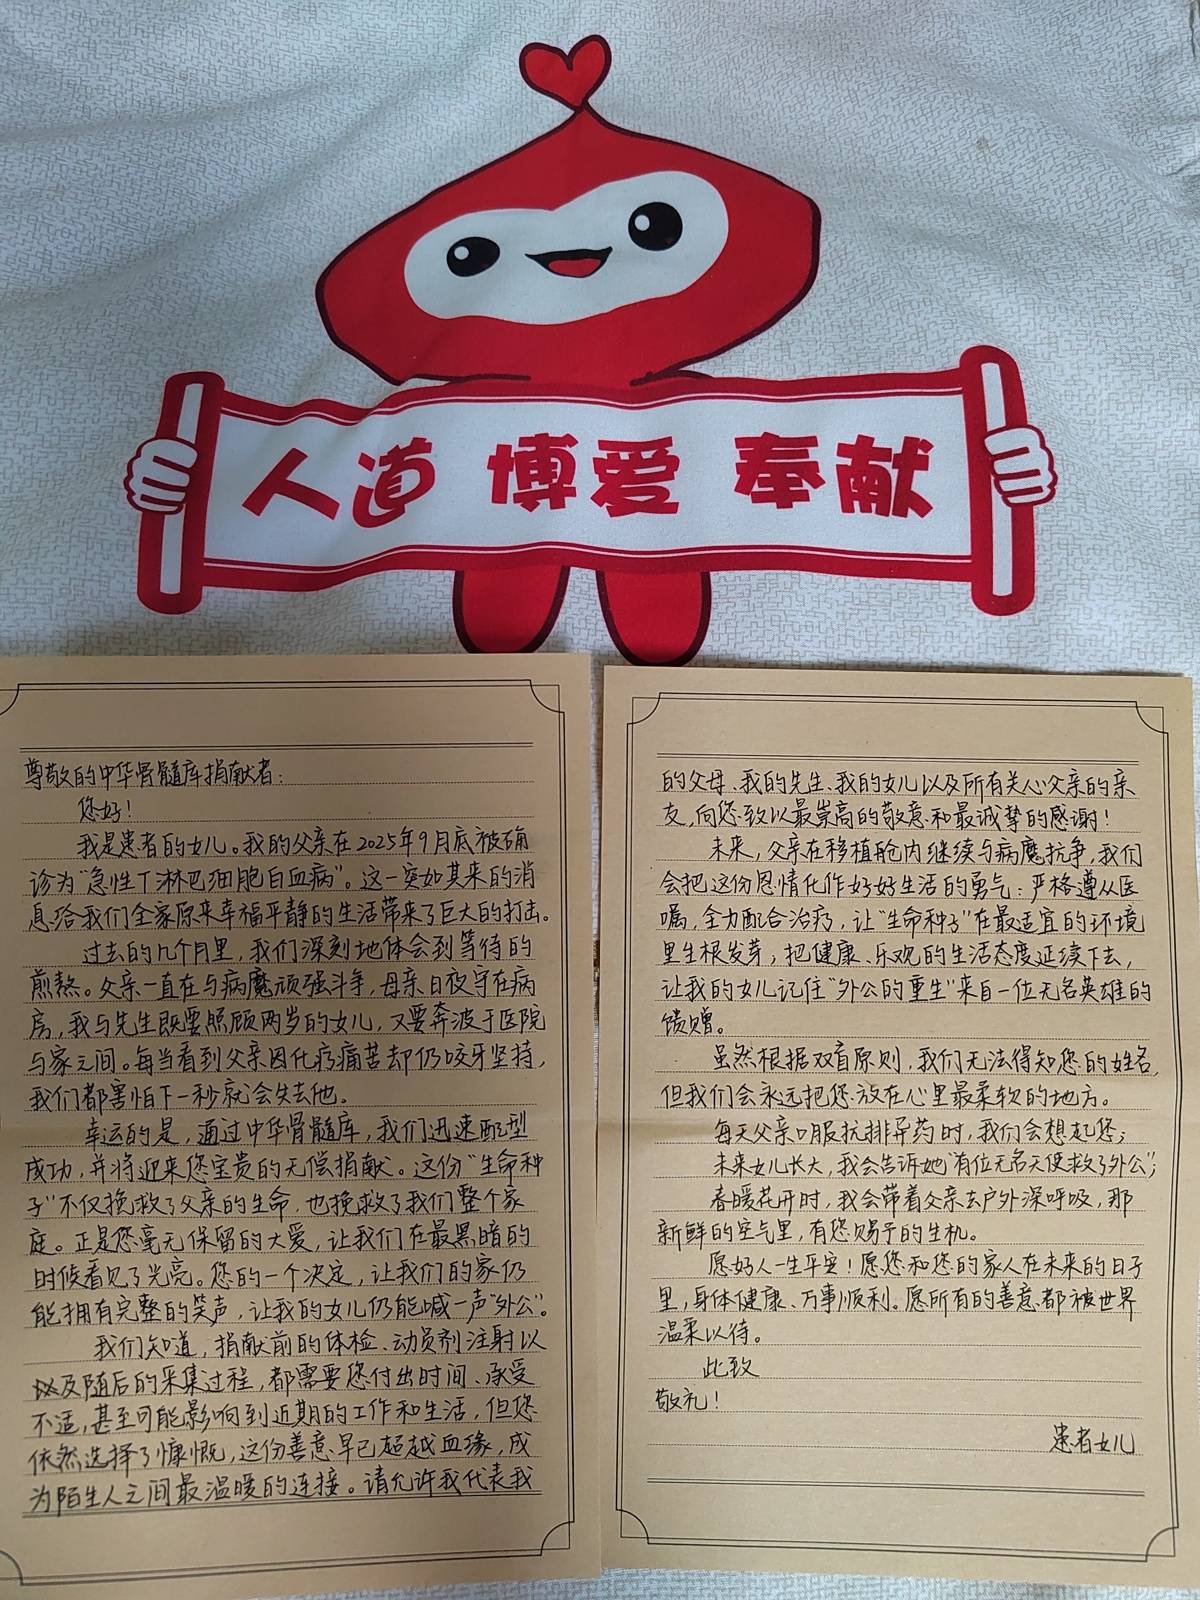 人道 博爱 奉献
尊敬的中华骨髓库捐献者：
您好！
我是患者的女儿。我的父亲在2025年9月底被确
诊为“急性T淋巴细胞白血病”。这一突如其来的消
息给我们全家原来幸福平静的生活带来了巨大的打击。
过去的几个月里，我们深刻地体会到等待的
煎熬。父亲一直在与病魔顽强斗争，母亲日夜守在病
房，我与先生既要照顾两岁的女儿，又要奔波于医院
与家之间。每当看到父亲因化疗痛苦却仍咬牙坚持，
我们都害怕下一秒就会失去他。
幸运的是，通过中华骨髓库，我们迅速配型
成功，并将迎来您宝贵的无偿捐献。这份“生命种
子”不仅挽救了父亲的生命，也挽救了我们整个家
庭。正是您毫无保留的大爱，让我们在最黑暗的
时候看见了光亮。您的一个决定，让我们的家仍
能拥有完整的笑声，让我的女儿仍能喊一声“外公”。
我们知道，捐献前的体检、动员剂注射以
及随后的采集过程，都需要您付出时间、承受
不适，甚至可能影响到近期的工作和生活，但您
依然选择了慷慨，这份善意早已超越血缘，成
为陌生人之间最温暖的连接。请允许我代表我
的父母、我的先生、我的女儿以及所有关心父亲的亲
友，向您致以最崇高的敬意和最诚挚的感谢！
未来，父亲在移植舱内继续与病魔抗争，我们
会把这份恩情化作好好生活的勇气：严格遵从医
嘱，全力配合治疗，让“生命种子”在最适宜的环境
里生根发芽；把健康、乐观的生活态度延续下去，
让我的女儿记住“外公的重生”来自一位无名英雄的
馈赠。
虽然根据双盲原则，我们无法得知您的姓名，
但我们会永远把您放在心里最柔软的地方。
每天父亲口服抗排异药时，我们会想起您；
未来女儿长大，我会告诉她“有位无名天使救了外公”；
春暖花开时，我会带着父亲去户外深呼吸，那
新鲜的空气里，有您赐予的生机。
愿好人一生平安！愿您和您的家人在未来的日子
里，身体健康、万事顺利。愿所有的善意都被世界
温柔以待。
此致
敬礼！
患者女儿